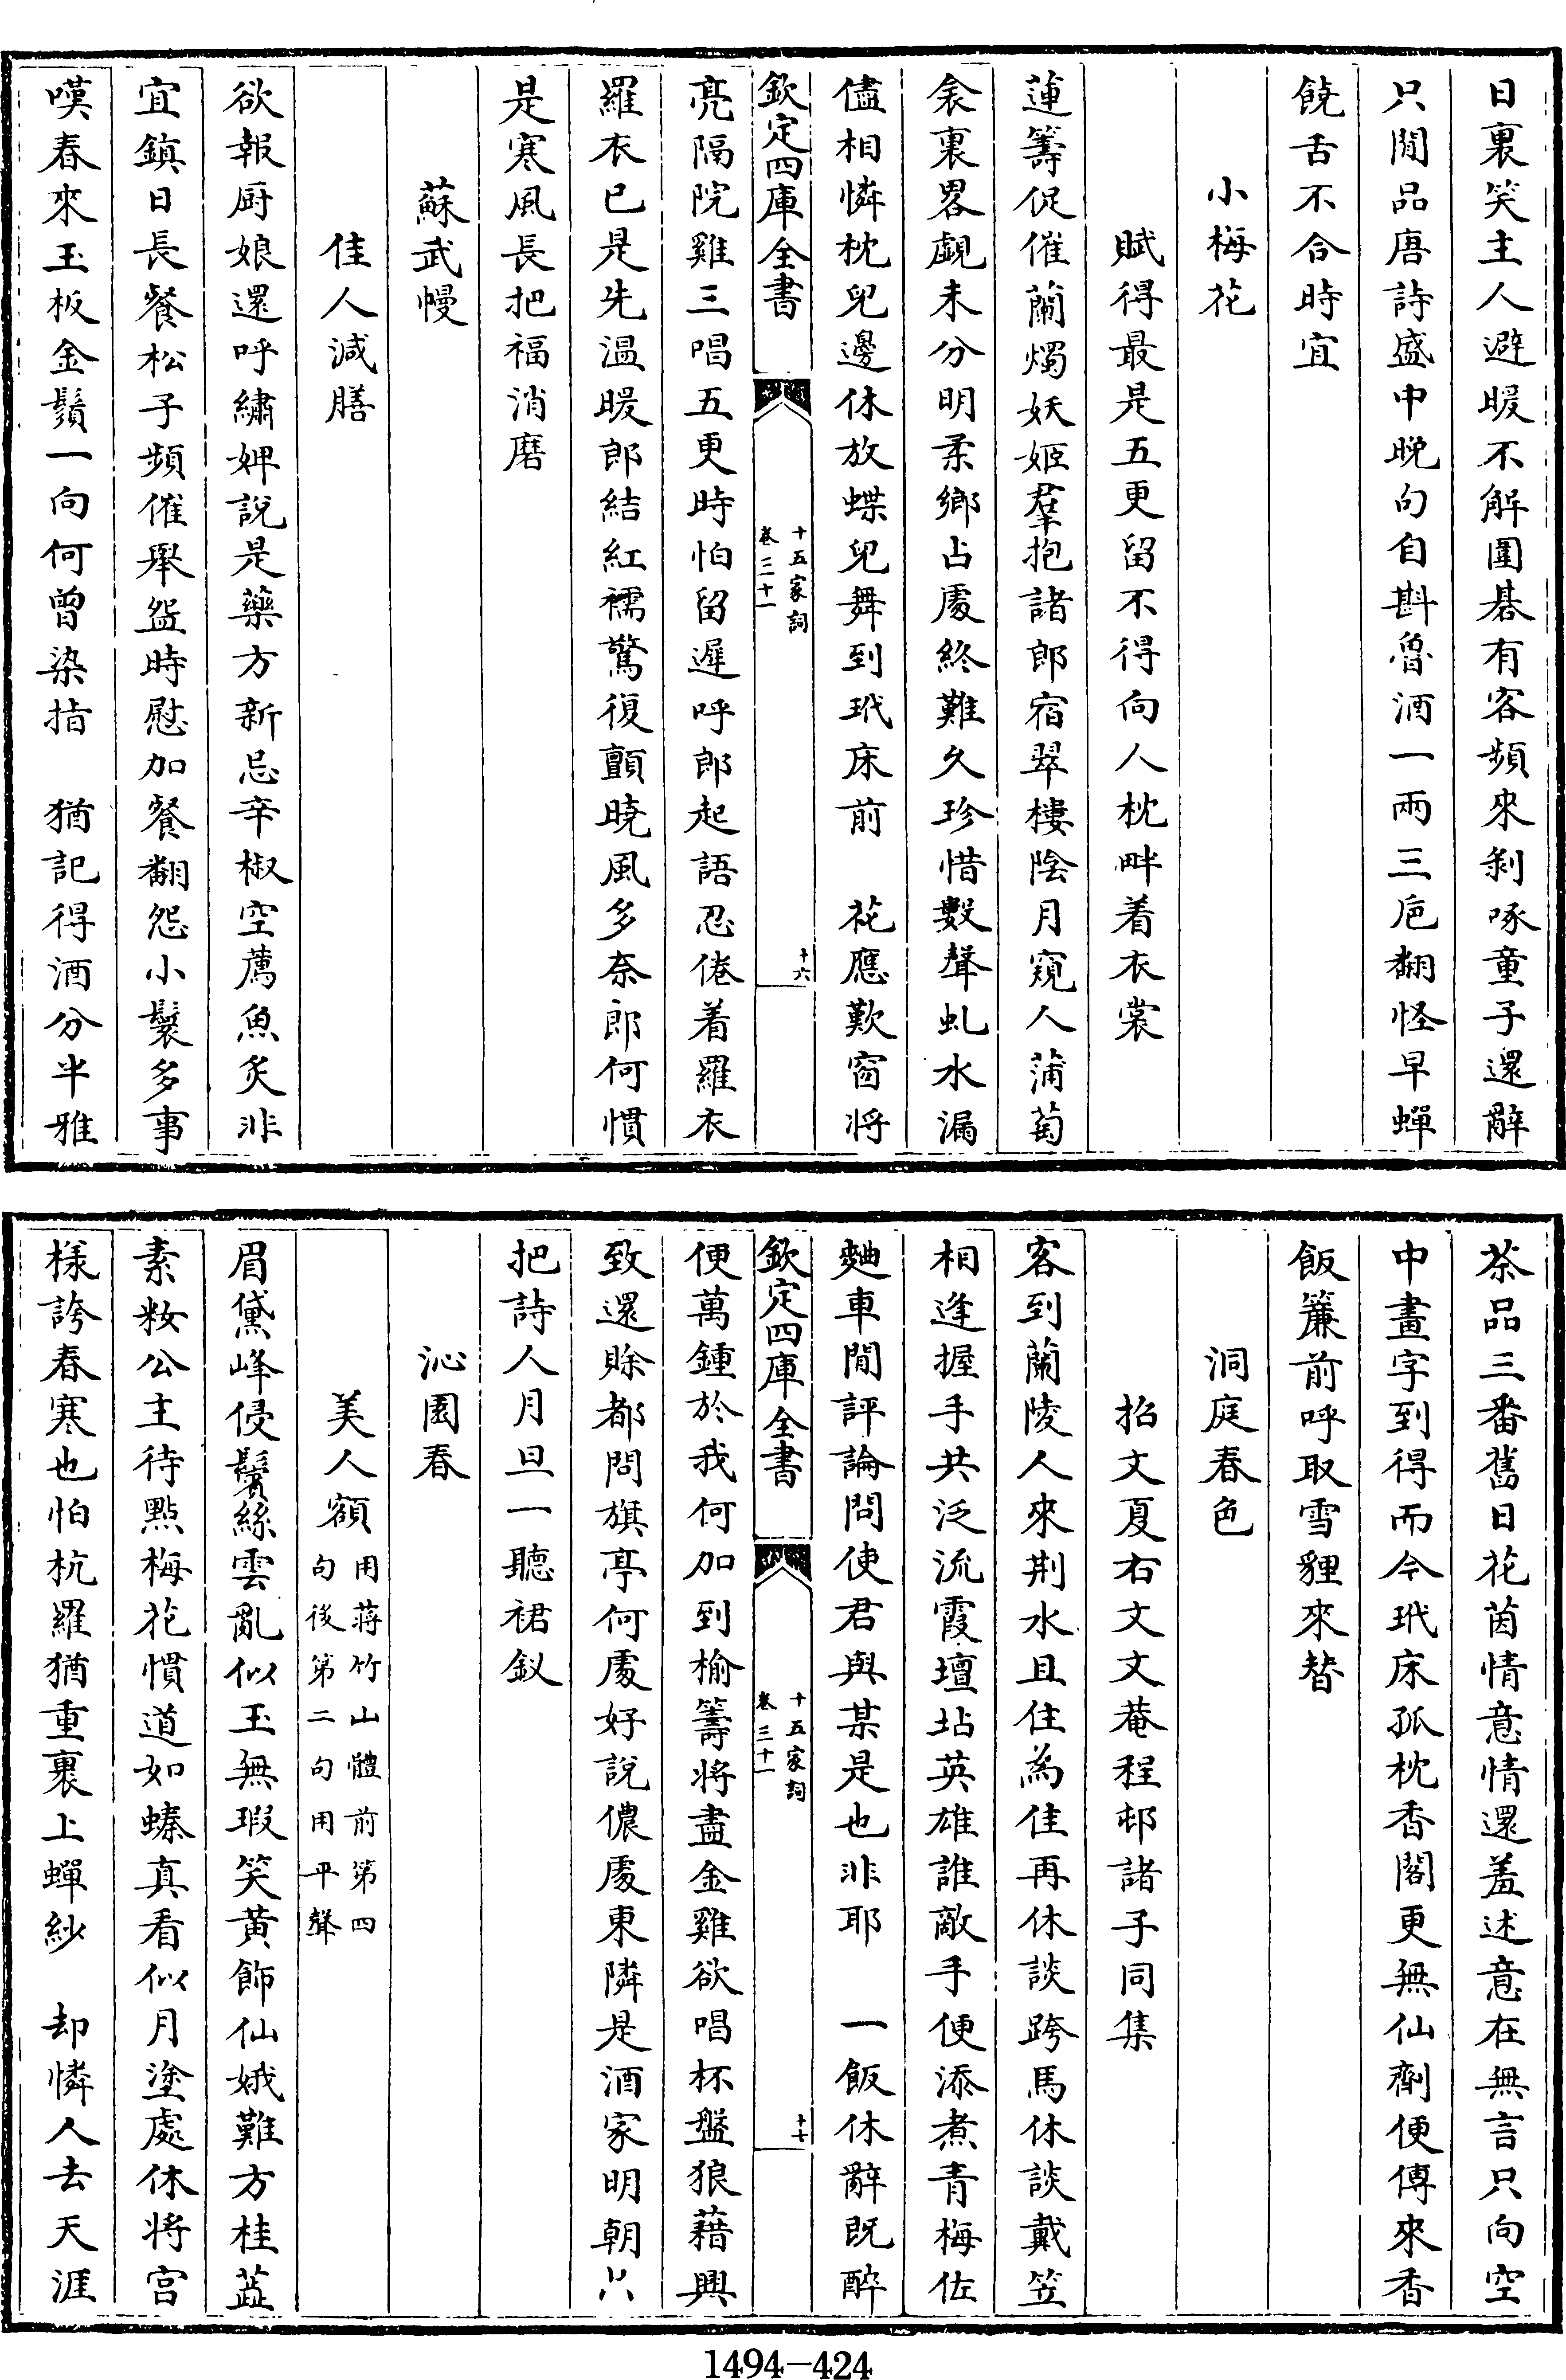 日裏笑主人避暖不解圍碁有客頻來剝啄童子還辭
只閒品唐詩盛中晚句自斟魯酒一兩三巵翻怪早蟬
饒舌不合時宜
小梅花
賦得最是五更留不得向人枕畔着衣裳
蓮籌促催蘭燭妖姬羣抱諸郎宿翠樓陰月窺人蒲萄
衾裏畧覷未分明柔鄉占處終難久珍惜數聲虬水漏
儘相憐枕兒邊休放蝶兒舞到玳床前　花應歎窗將
欽定四庫全書　十五家詞　卷三十一　十六
亮隔院雞三唱五更時怕留遲呼郎起語忍倦着羅衣
羅衣已是先溫暖郎結紅襦驚復顫曉風多奈郎何慣
是寒風長把福消磨
蘇武幔
佳人減膳
欲報厨娘還呼繡婢說是藥方新忌辛椒空薦魚炙非
宜鎮日長餐松子頻催舉盌時慰加餐翻怨小鬟多事
嘆春來玉板金鬚一向何曾染指　猶記得酒分半雅
茶品三番舊日花茵情意情還羞述意在無言只向空
中畫字到得而今玳床孤枕香閣更無仙劑便傳來香
飯簾前呼取雪貍來替
洞庭春色
招文夏右文文菴程邨諸子同集
客到蘭陵人來荆水且住為佳再休談跨馬休談戴笠
相逢握手共泛流霞壇坫英雄誰敵手便添煮青梅佐
麯車閒評論問使君與某是也非耶　一飯休辭既醉
欽定四庫全書　十五家詞　卷三十一　十七
便萬鍾於我何加到榆籌將盡金雞欲唱杯盤狼藉興
致還賖都問旗亭何處好說儂處東隣是酒家明朝只
把詩人月旦一聽裙釵
沁園春
美人額用蔣竹山體前第四句後第二句用平聲
眉黛峰侵鬢絲雲亂似玉無瑕笑黃飾仙娥難方桂蕋
素妝公主待點梅花慣道如螓真看似月塗處休將宮
樣誇春寒也怕杭羅猶重裹上蟬紗　却憐人去天涯
1494-424